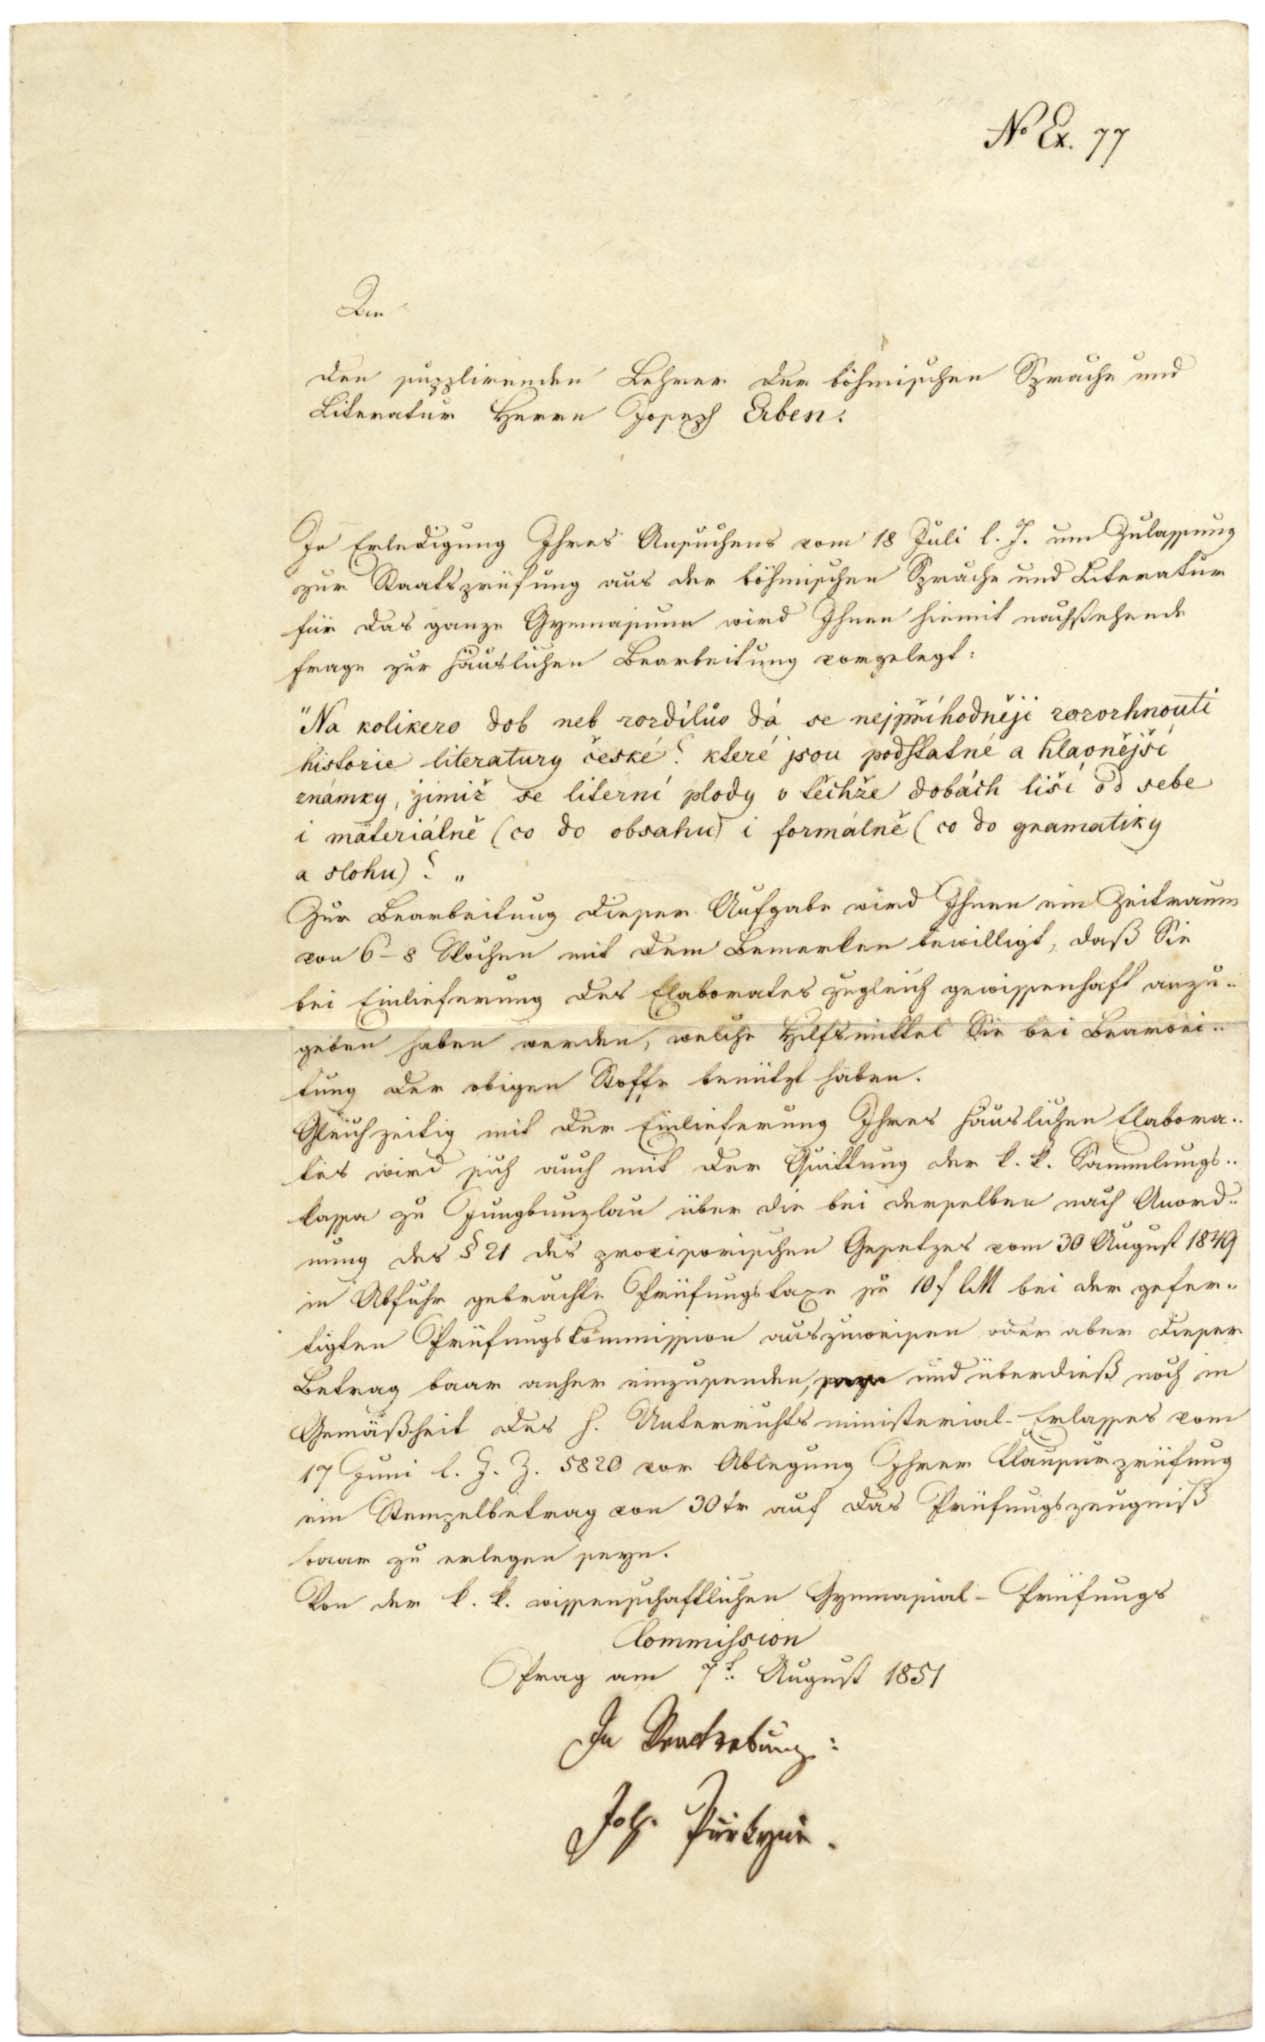 No Ex. 77
An
den supplirenden Lehrer der böhmischen Sprache und
Literatur Herrn Joseph Erben.
In Erledigung Ihres Ansuchens vom 18 Juli l. J. um Zulassung
zur Staatsprüfung aus der böhmischen Sprache und Literatur
für das ganze Gymnasium wird Ihnen hiemit nachstehende
Frage zur häuslichen Bearbeitung vorgelegt:
"Na kolikero dob neb rozdílův dá se nejpříhodněji rozvrhnouti
historie literatury české? které jsou podstatné a hlavnější
známky, jimiž se literní plody v těchže dobách liší od sebe
i materiálně (co do obsahu) i formálně (co do gramatiky
a slohu)? "
Zur Bearbeitung dieser Aufgabe wird Ihnen ein Zeitraum
von 6-8 Wochen mit dem Bemerken bewilligt, daß Sie
bei Einlieferung des Elaborates zugleich gewissenhaft anzu-
geben haben werden, welche Hilfsmittel Sie bei Bearbei-
tung der obigen Stoffe benützt haben.
Gleichzeitig mit der Einlieferung Ihres häuslichen Elabora-
tes wird sich auch mit der Quittung der k. k. Sammlungs-
kassa zu Jungbunzlau über die bei derselben nach Anord-
nung des § 21 des provisorischen Gesetzes vom 30 August 1849
in Abfuhr gebrachte Prüfungstaxe zu 10 f CM bei der gefer-
tigten Prüfungskommission auszuweisen oder aber dieser
Betrag baar anher einzusenden, und überdieß noch in
Gemäßheit des h. Unterrichtsministerial-Erlasses vom
17 Juni l. J. Z. 5820 vor Ablegung Ihrer Klausurprüfung
ein Stempelbetrag von 30 kr auf das Prüfungszeugniß
baar zu erlegen seyn.
Von der k. k. wissenschaftlichen Gymnasial-Prüfungs
Commission
Prag am 7t. August 1851
In Vertretung:
Joh. Purkyně.